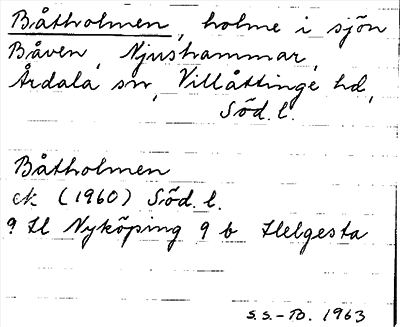 Båtholmen, holme i sjön
Båven, Njushammar,
Årdala sn, Villåttinge hd,
Söd. l.
Båtholmen
ek (1960) Söd. l.
9 H Nyköping 9 b Helgesta
S.S.-B. 1963